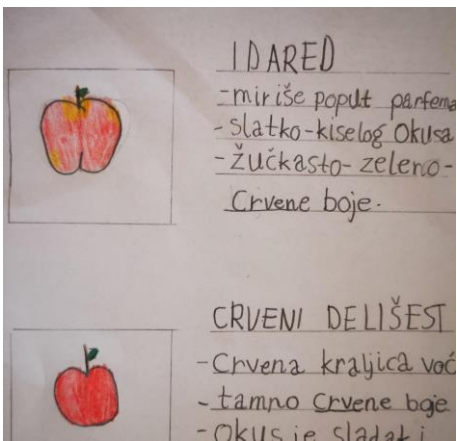 IDARED
- miriše poput parfema
- slatko-kiselog okusa
- žućkasto-zeleno-
crvene boje.
CRVENI DELIŠEST
- Crvena kraljica voć
- tamno crvene boje
- Okus je sladak i